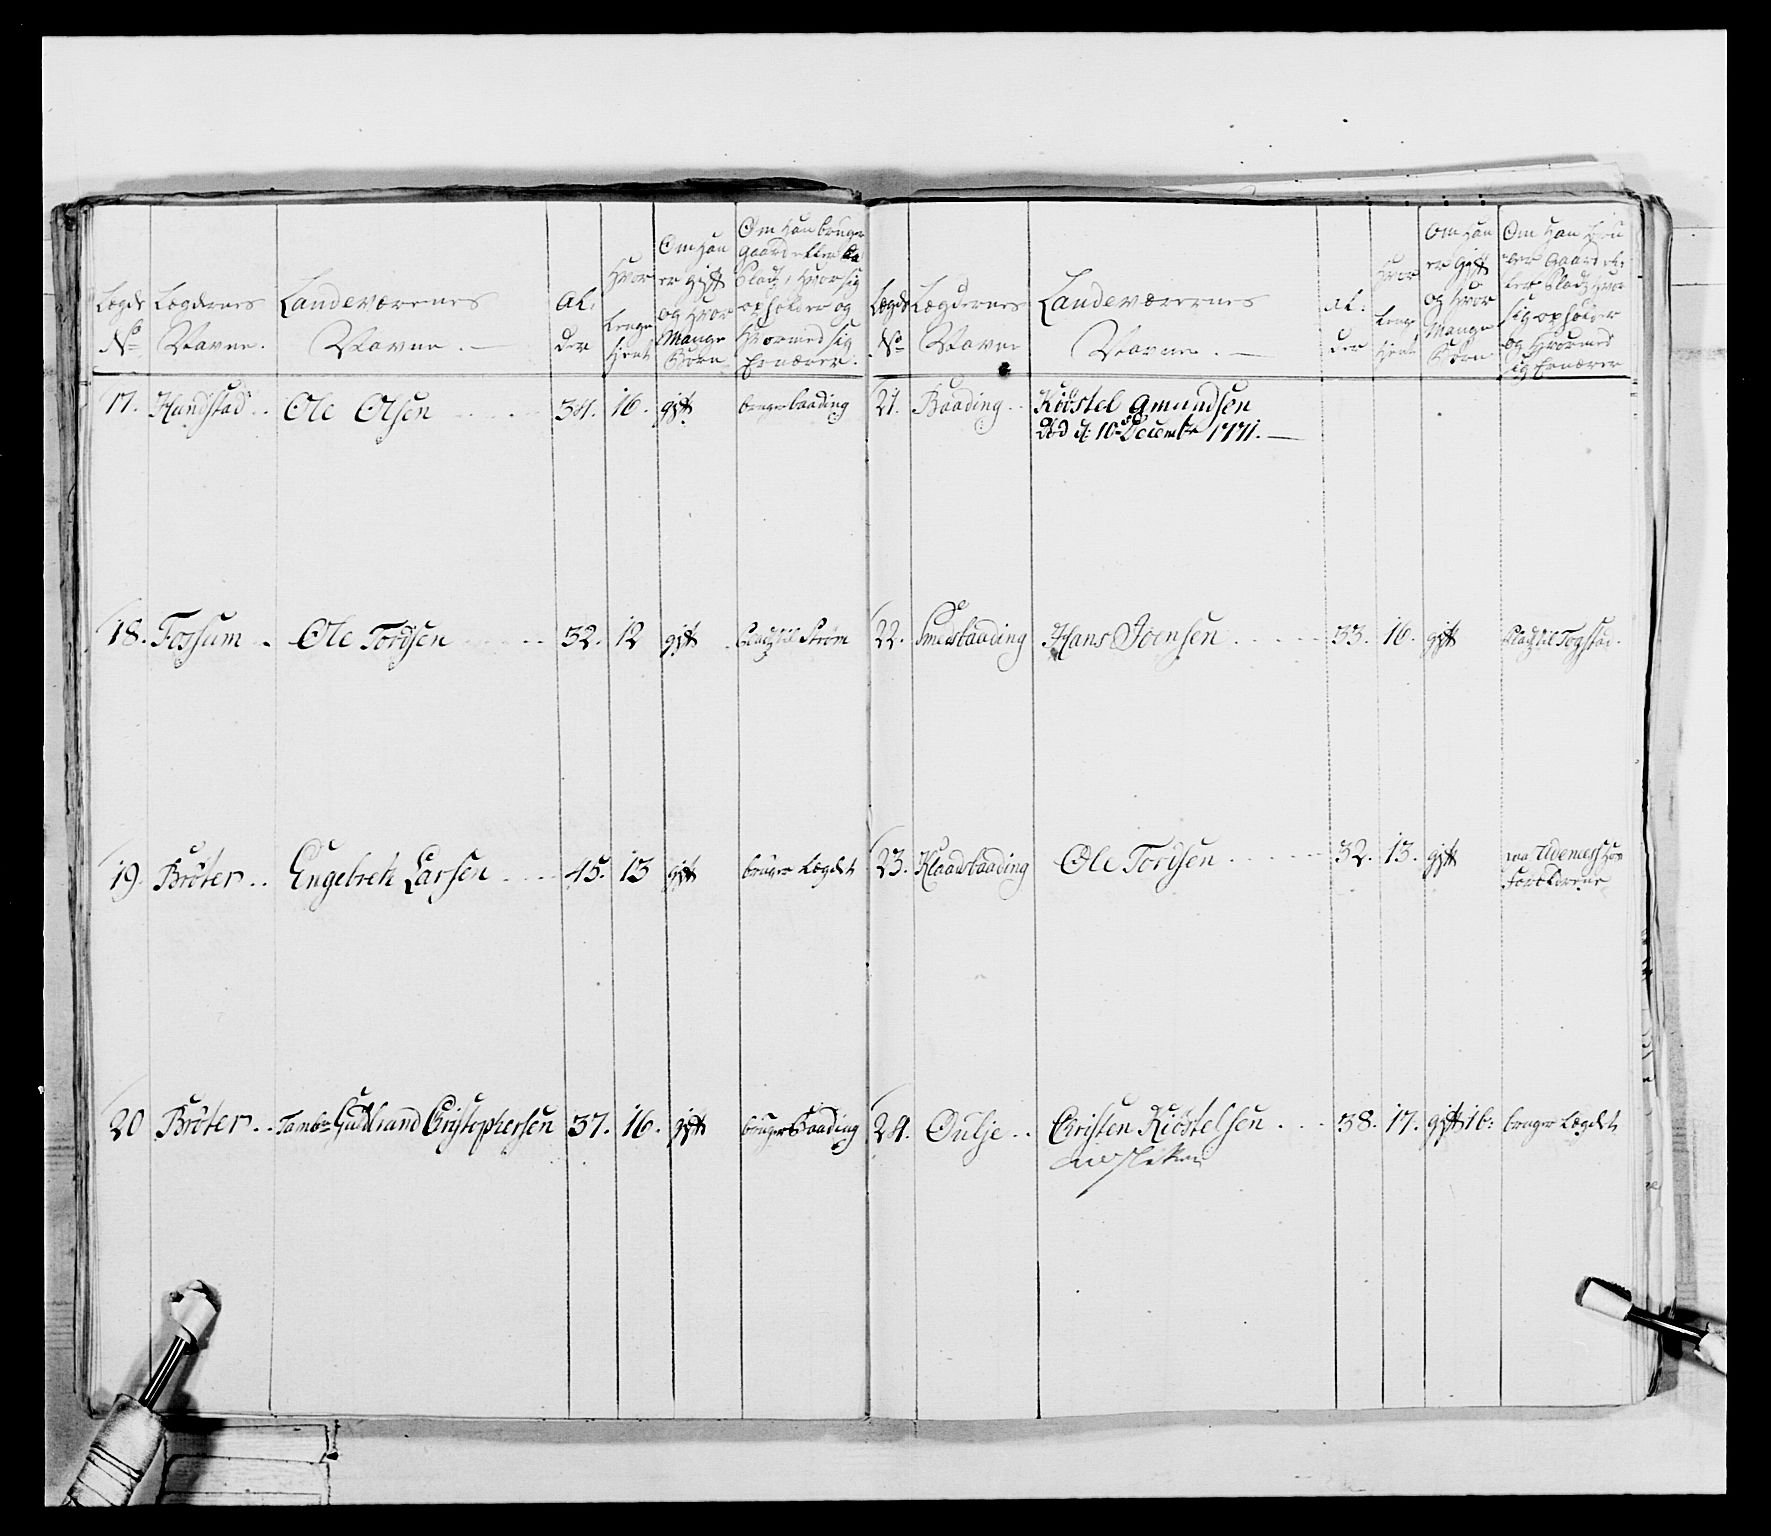 Legds No
Legdernes Navne.
Landeværenes Navne. —
Al: der
Hvor lenge tient
Om Han er gift og Hvor Mange Börn
Om Han bruger Gaard eller Platz, Hvor sig opholder og Hvormed sig Ernærer.
17. Handstad .. Ole Olsen 34. 16. gift bruger baading
18. Fossum . Ole Tordsen 32. 12 gift Platz til Ström
19. Bröter .. Engebreth Larsen 45. 13 gift bruger Legdet
20 Bröter .. Tambr Gudbrand Christophersen 37. 16. gift bruger Baading
Legds No
Legdernes Navne
Landeværernes Navne. —
al: der
Hvor lenge tient
Om Han er gift og Hvor Mange Börn
Om Han bruger Gaard eller Platz, Hvor sig opholder og Hvormed sig Ernærer
21. Baading .. Kiöstel Amundsen
Död d: 10de Decembr 1771. —
22. Smedsbaading Hans Joensen 33. 16. gift Platz til Togstad.
23. Klaadbaading Ole Tordsen 32. 13. gift paa Udenæss hos
Foreldrene
24. Oulje .. Christen Kiöstelsen 38. 17. gift 1 b: bruger Legdet